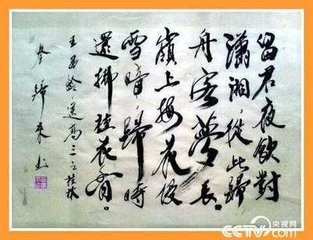 留君夜飲對
瀟湘,從此歸
舟客夢長。
嶺上梅花侵
雪暗,歸時
還拂桂花香。
王昌齡送高三之桂林
央视网
CCTV.com